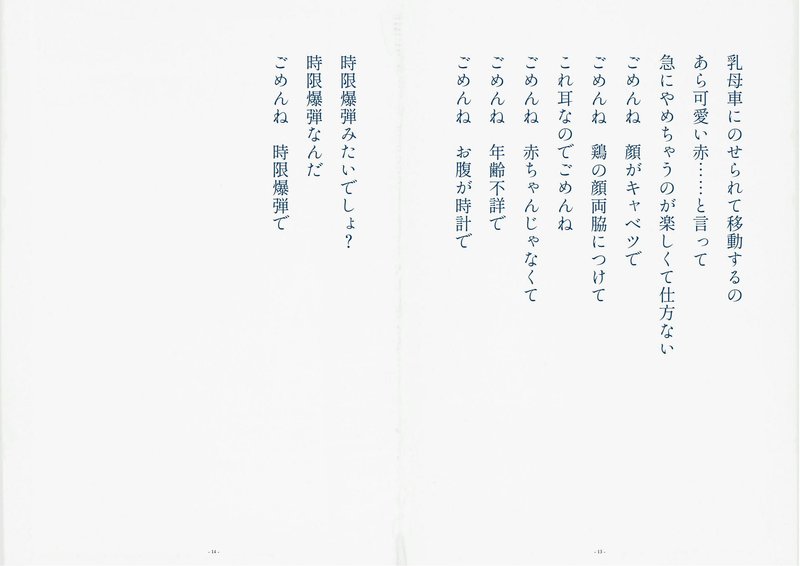 乳母車にのせられて移動するの
あら可愛い赤……と言って
急にやめちゃうのが楽しくて仕方ない
ごめんね　顔がキャベツで
ごめんね　鶏の顔両脇につけて
これ耳なのでごめんね
ごめんね　赤ちゃんじゃなくて
ごめんね　年齢不詳で
ごめんね　お腹が時計で
- 13 -
時限爆弾みたいでしょ？
時限爆弾なんだ
ごめんね　時限爆弾で
- 14 -